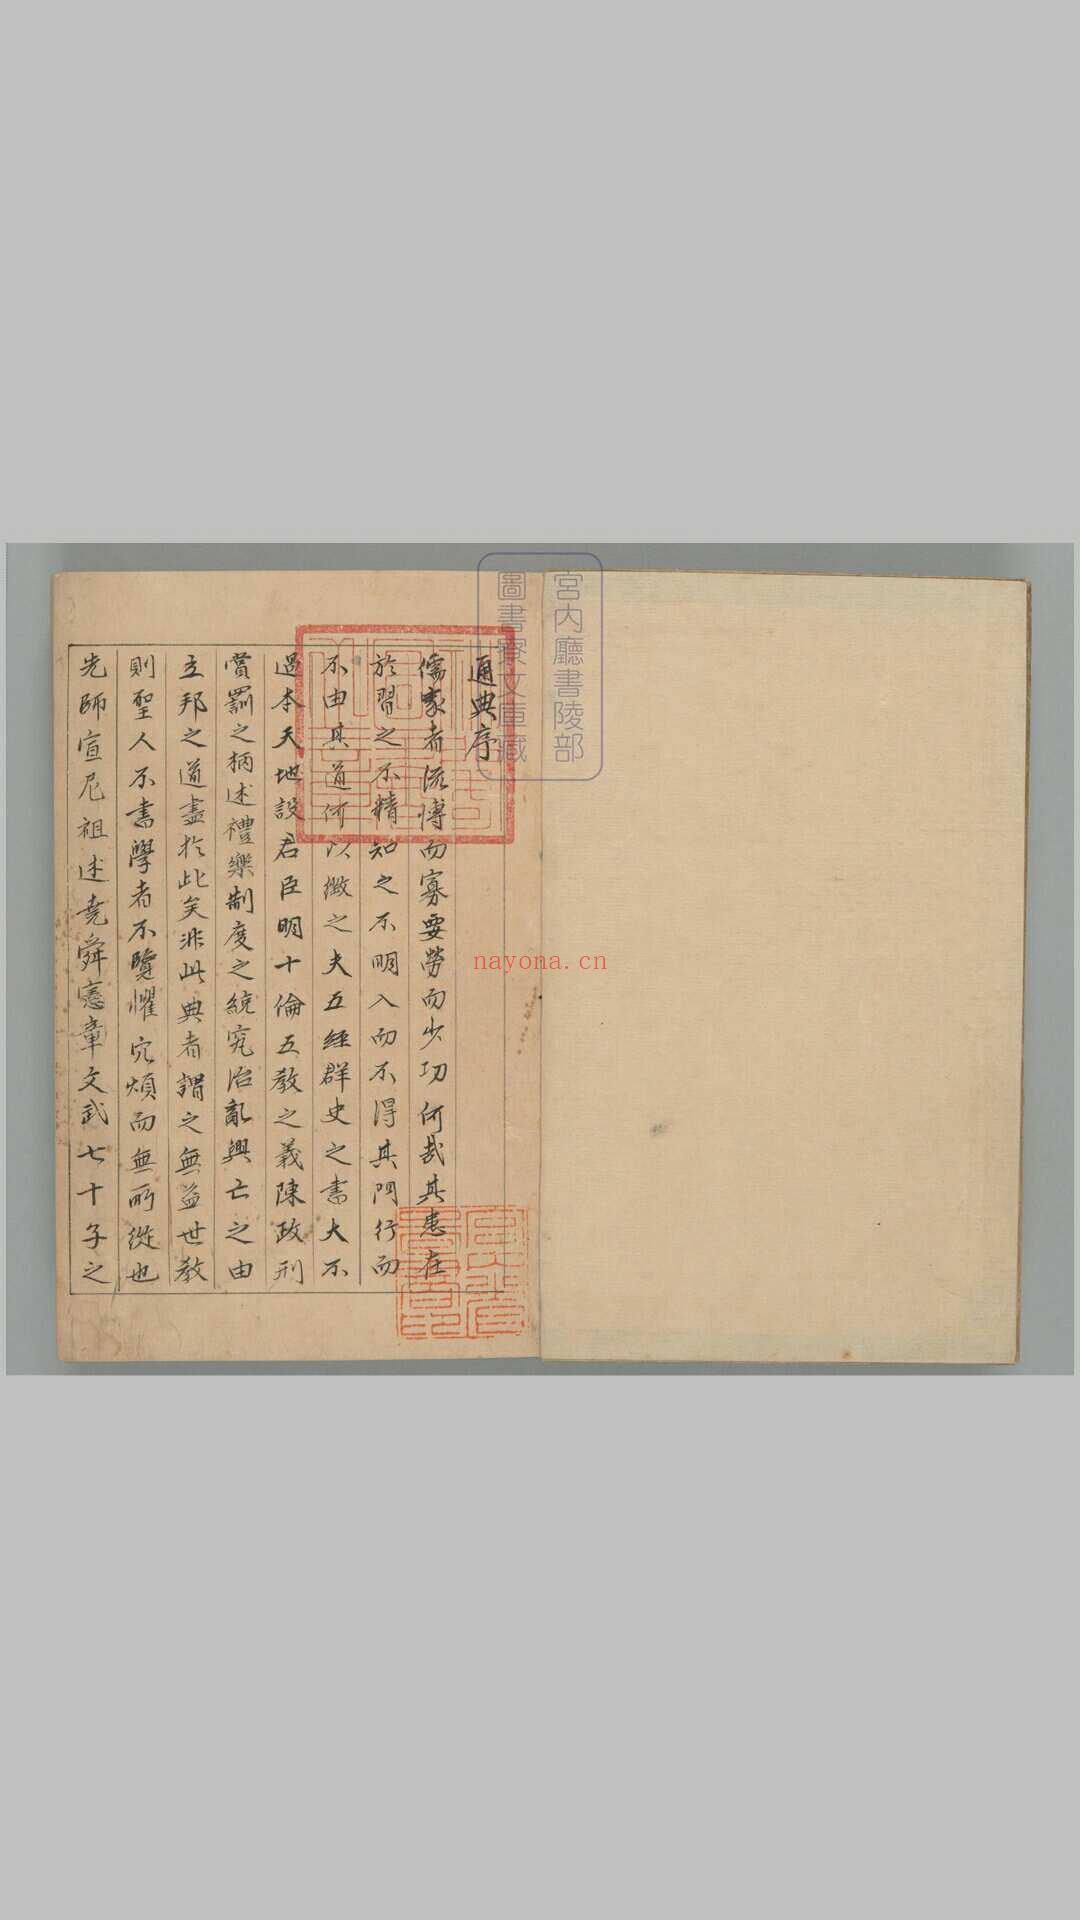 宮內廳書陵部
圖書寮文庫藏
通典序
儒家者流博而寡要勞而少功何哉其患在
於習之不精知之不明入而不得其門行而
不由其道何以徵之夫五經群史之書大不
過本天地設君臣明十倫五教之義陳政刑
賞罰之柄述禮樂制度之統究治亂興亡之由
立邦之道盡於此矣非此典者謂之無益世教
則聖人不書學者不覽懼冗煩而無所從也
先師宣尼祖述堯舜憲章文武七十子之
nayona.cn